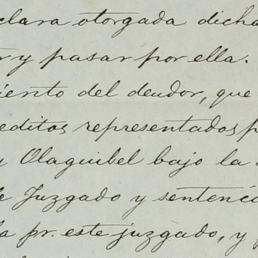 clara otorgada dicha
r y pasar por ella.
iento del deudor, que
editos representados p
y Olaguibel bajo la
e Juzgado y sentenci
a pr. este juzgado, y